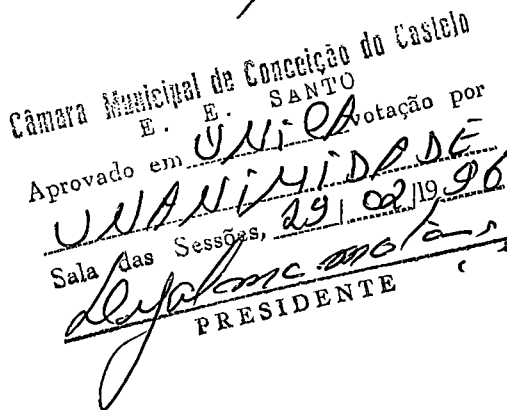 Câmara Municipal de Conceição do Castelo
E. E. SANTO
Aprovado em ÚNICA votação por
UNANIMIDADE
Sala das Sessões, 29/02/1996
PRESIDENTE